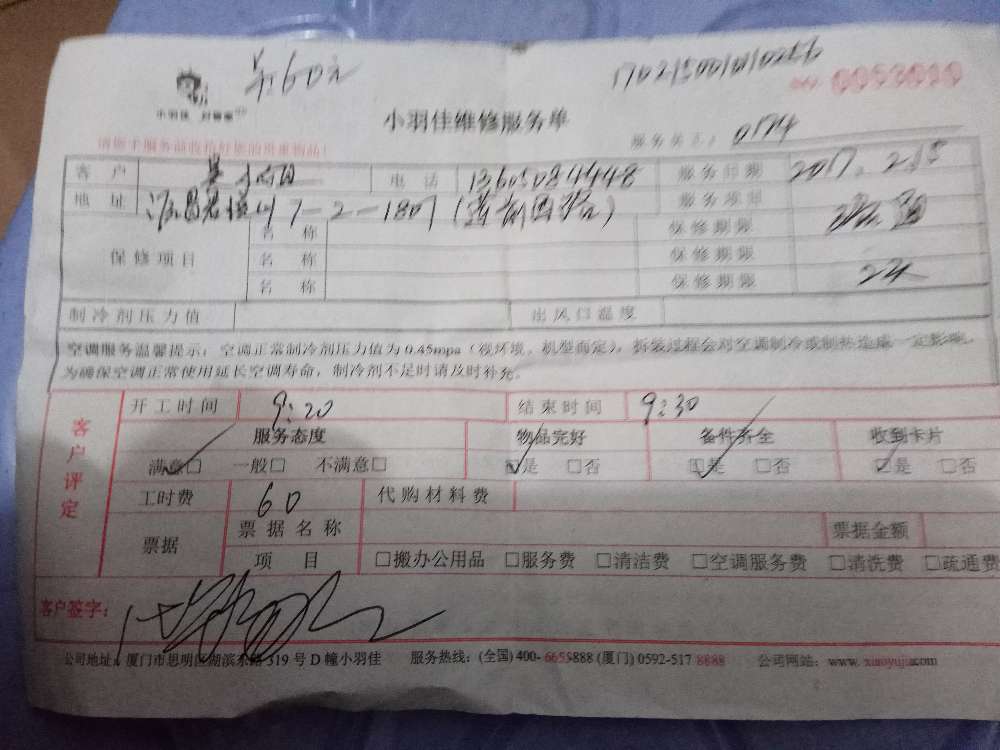 共60元
17021500101010256
小羽佳 好管家
No. 0053030
小羽佳维修服务单
服务员工: 0174
请您于服务前收拾好您的贵重物品!
客户 电话 13605084448 服务日期 2017.2.15
地址 7-2-1807 服务项目
名称 保修期限
保修项目 名称 保修期限
名称 保修期限 2天
制冷剂压力值 出风口温度
空调服务温馨提示:空调正常制冷剂压力值为0.45mpa(视环境、机型而定),拆装过程会对空调制冷或制热造成一定影响,
为确保空调正常使用延长空调寿命,制冷剂不足时请及时补充。
客户评定
开工时间 9:20 结束时间 9:30
服务态度 物品完好 备件齐全 收到卡片
满意□ 一般□ 不满意□ □是 □否 □是 □否 □是 □否
工时费 60 代购材料费
票据 票据名称 票据金额
项目 □搬办公用品 □服务费 □清洁费 □空调服务费 □清洗费 □疏通费
客户签字:
公司地址:厦门市思明区湖滨东路319号D幢小羽佳 服务热线:(全国)400-6655888(厦门)0592-5178888 公司网站:www.xiaoyujia.com